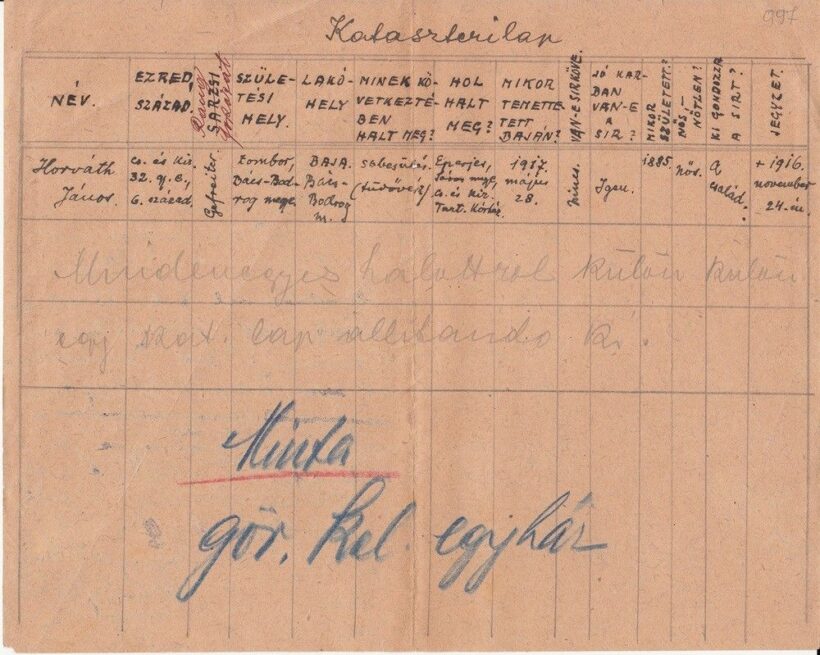 997
Kataszterilap
NÉV.
EZRED,
SZÁZAD.
SARZSI
SZÜLE-
TÉSI
HELY.
LAKÓ-
HELY
MINEK KÖ-
VETKEZTÉ-
BEN
HALT MEG?
HOL
HALT
MEG?
MIKOR
TEMETTE-
TETT
BAJÁN?
VAN-E SIRKÖVE.
JÓ KAR-
BAN
VAN-E
A
SIR?
MIKOR
SZÜLETETT?
NÖS-
NÖTLEN?
KI GONDOZZA
A SIRT?
JEGYZET
Horváth
János.
cs. és kir.
32. gy. e.,
6. század.
Gefreiter.
Zombor,
Bács-Bod-
rog megye
BAJA.
Bács-
Bodrog
m.
sebesülés.
(tüdövér)
Eperjes,
Sáros mgye,
cs. és kir.
Tart. Kórház.
1917.
május
28.
nincs.
Igen.
1885.
nös.
a
család.
+ 1916.
november
24-én.
Mindenegyes halottról külön külön
egy kat. lap állitandó ki.
Minta
gör. kel. egyház